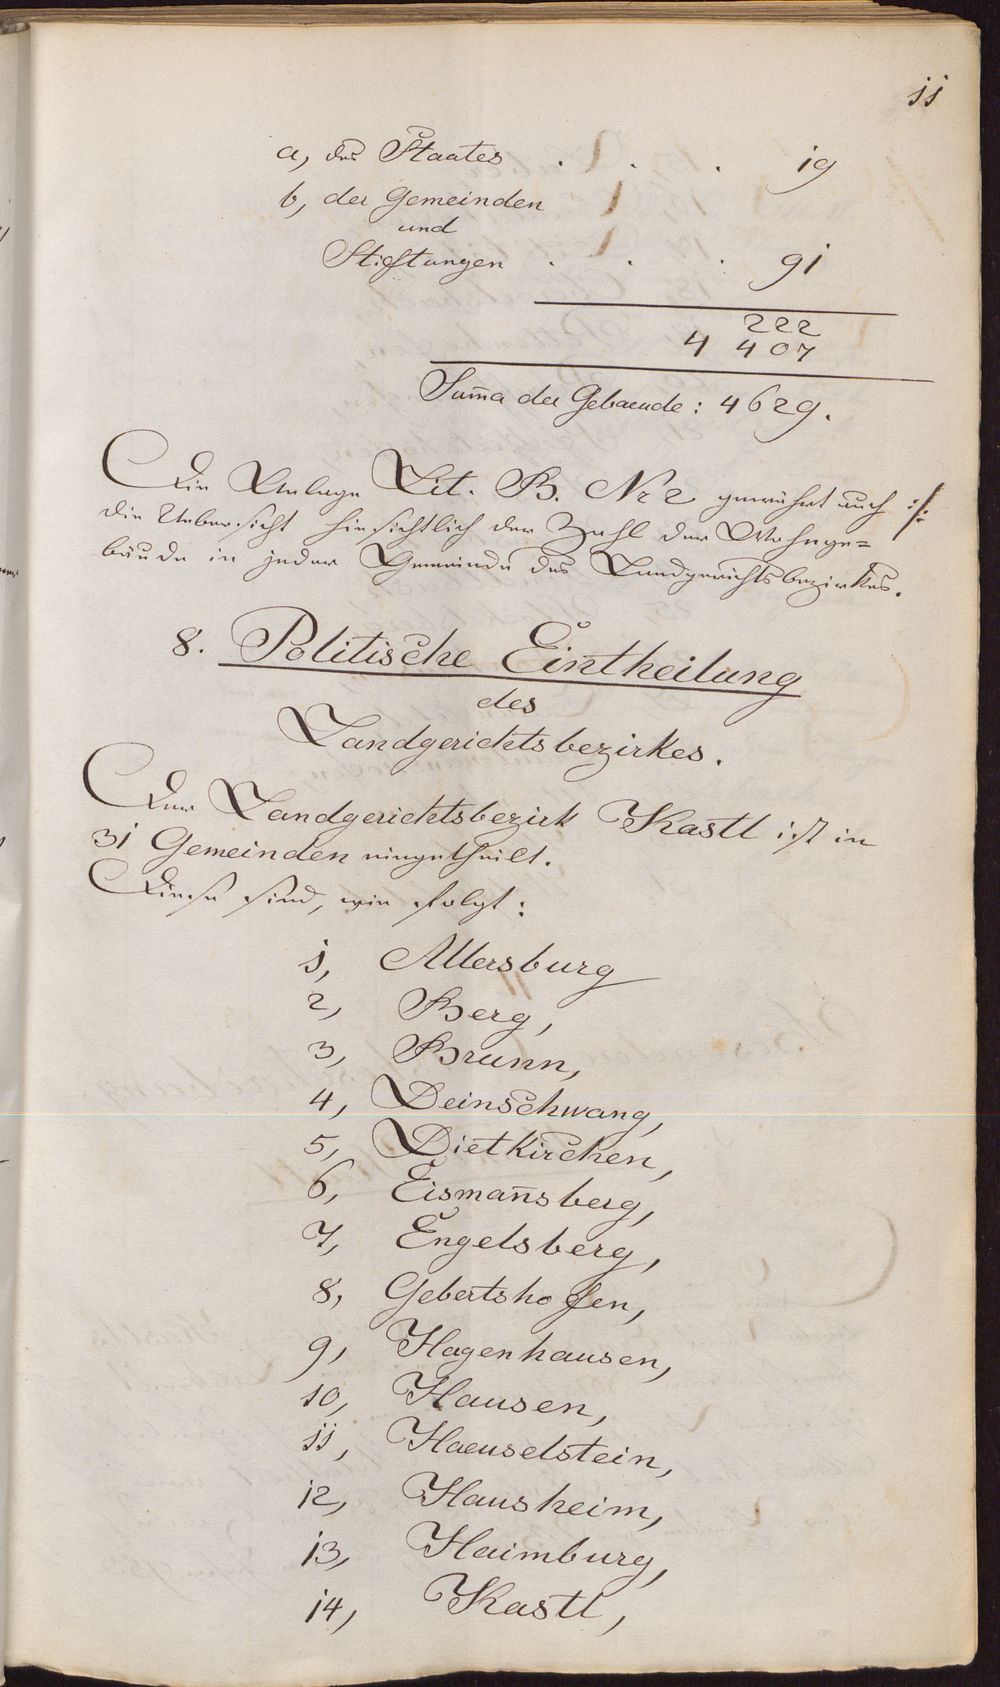 11
a, des Staates . . . 19
b, der Gemeinden
und
Stiftungen . . . 91
222
4 407
Suma der Gebaeude: 4629.
Die Anlage Lit. B. Nr 2 gewährt auch
die Uebersicht hinsichtlich der Zahl der Wohnge=
bäude in jeder Gemeinde des Landgerichtsbezirkes.
8. Politische Eintheilung
des
Landgerichtsbezirkes.
Der Landgerichtsbezirk Kastl ist in
31 Gemeinden eingetheilt.
Diese sind, wie folgt:
1, Allersburg
2, Berg,
3, Brunn,
4, Deinschwang,
5, Dietkirchen,
6, Eismansberg,
7, Engelsberg,
8, Gebertshofen,
9, Hagenhausen,
10, Hausen,
11, Haeuselstein,
12, Hausheim,
13, Haimburg,
14, Kastl,